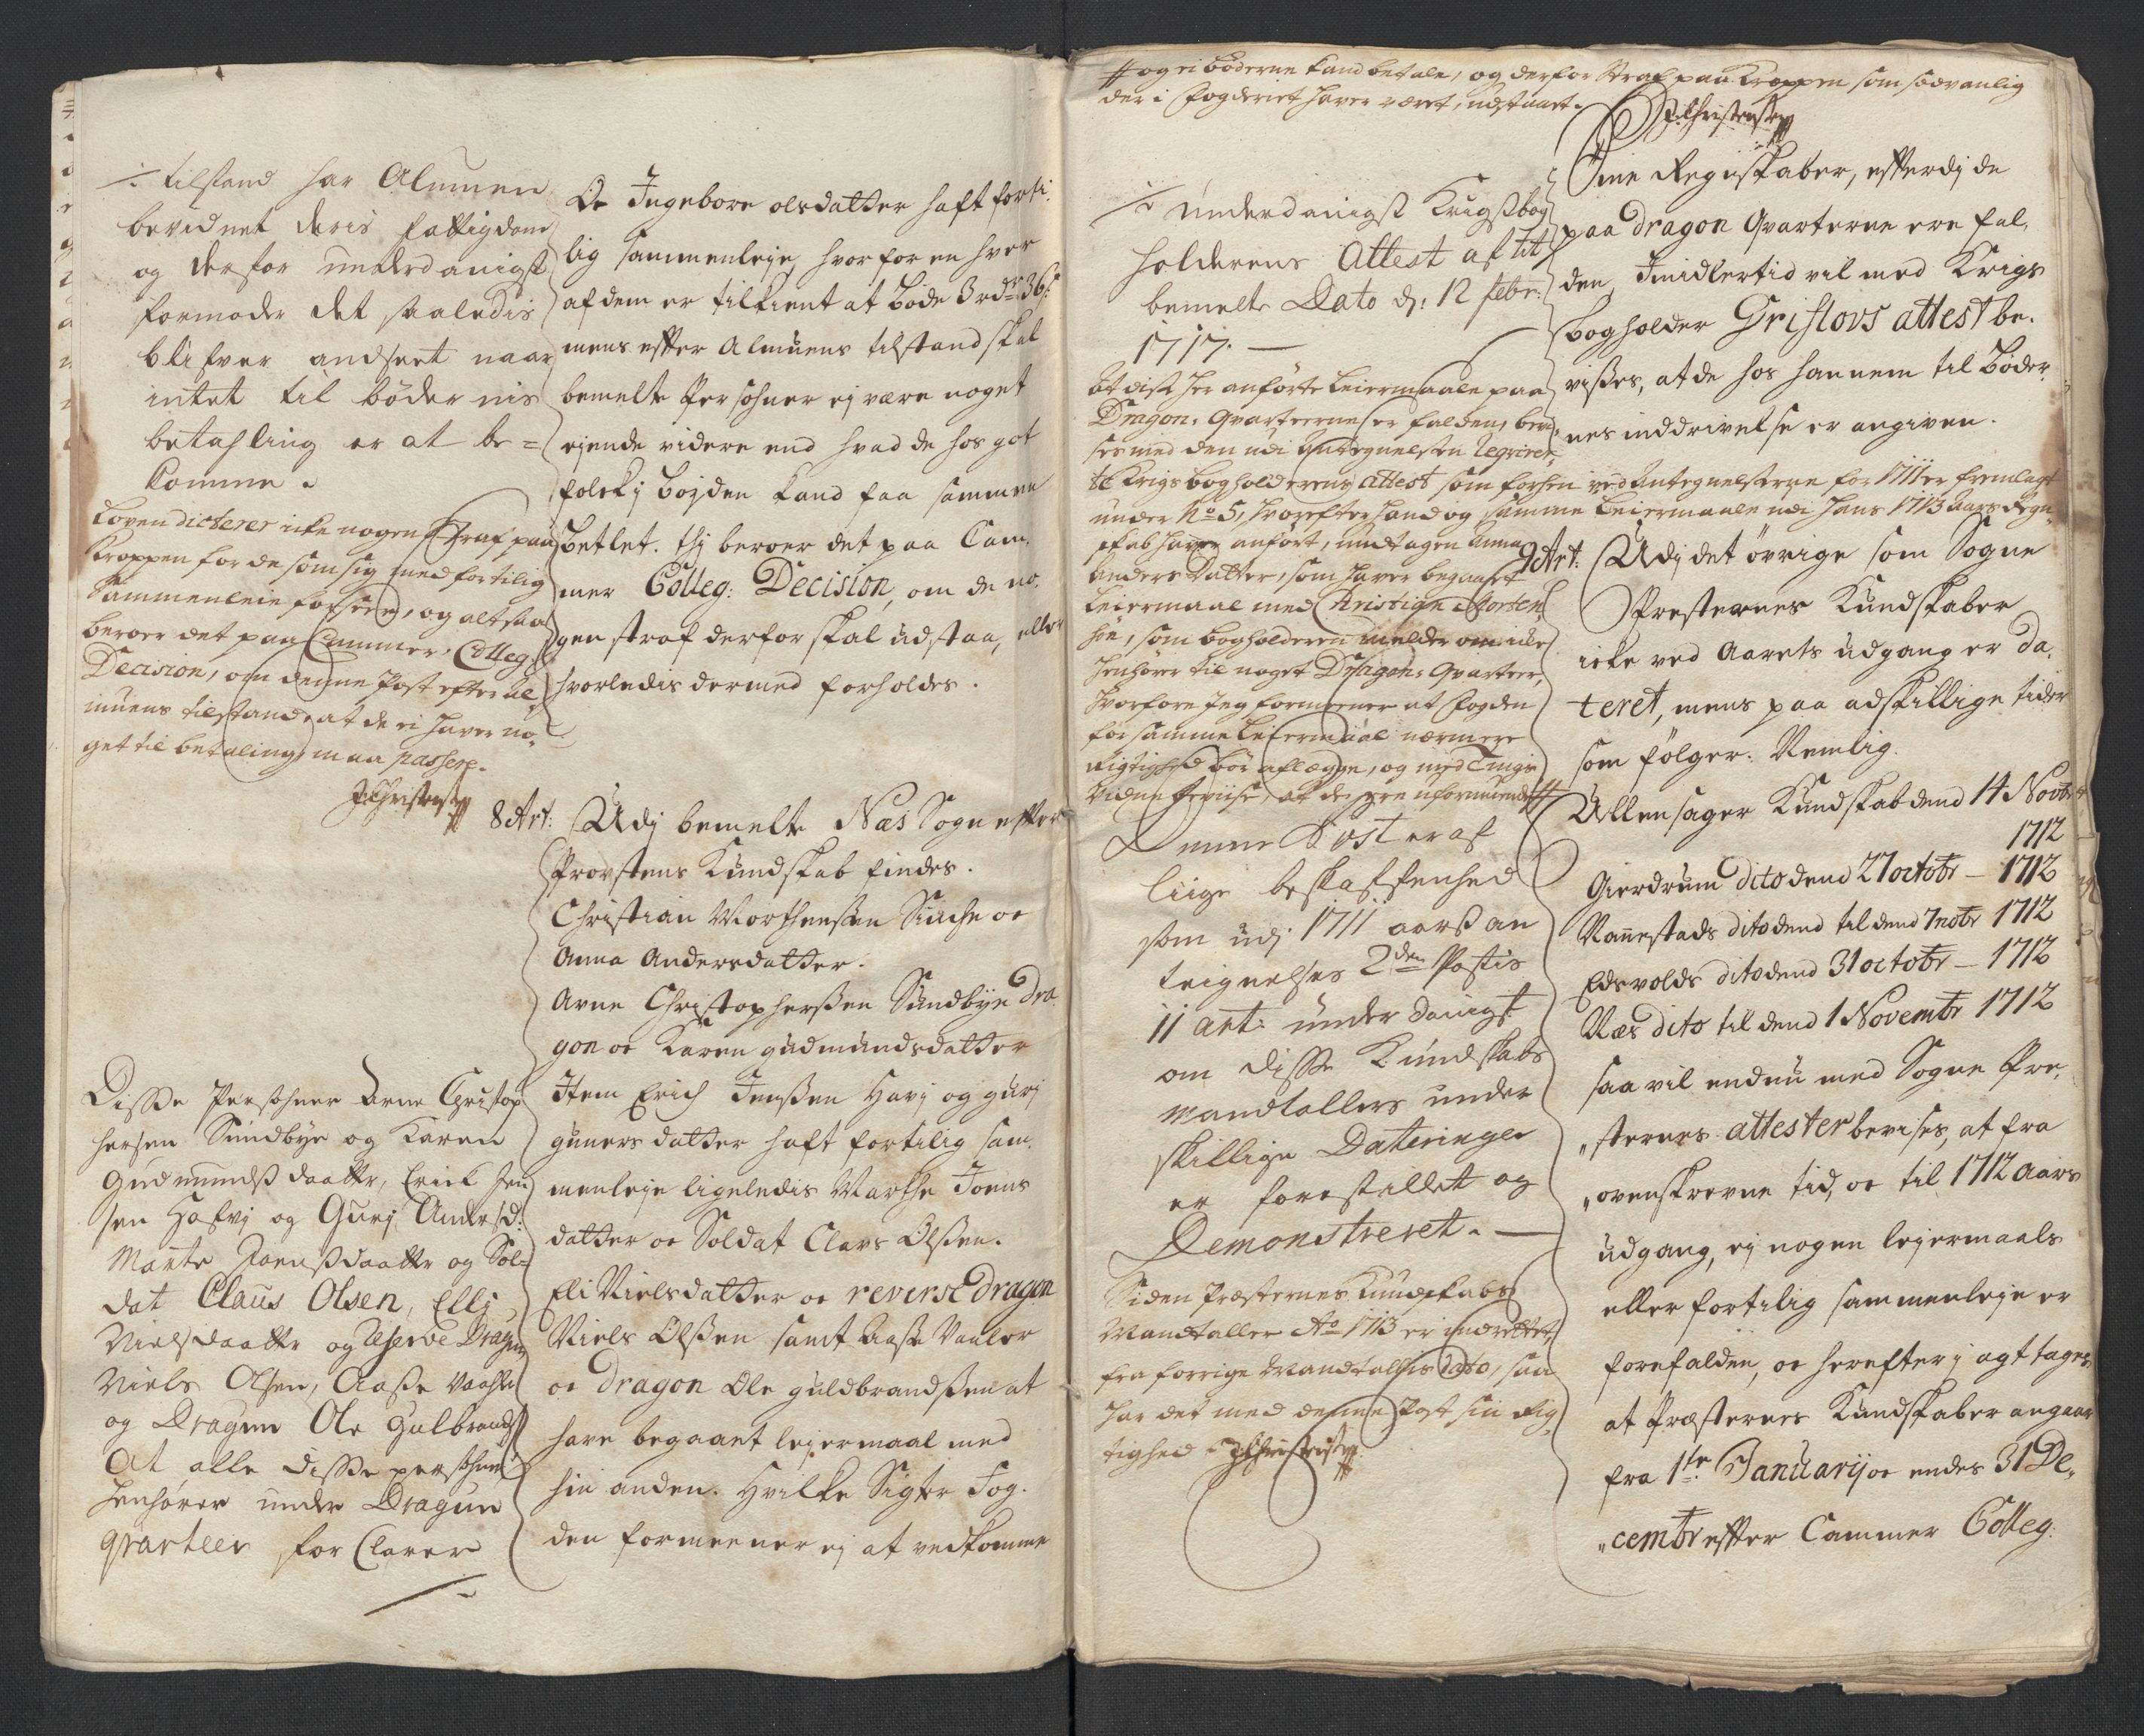 tilstand har Almuen
bevidnet deris fattigdom
og derfor underdanigst
formoder det saaledis
blifver andseet naar
intet til bødernis
betahling er at be=
komme.
Loven dicterer icke nogen straf paa
Kroppen for de som sig med fortilig
Sammenleie forseer, og altsaa
beroer det paa Cammer Colleg:
Decision, om denne Post efter al-
muens tilstand, at de ei haver no-
get til betaling, maa passere.
Oc Ingebore olsdatter haft forti-
lig sammenleje, hvorfor en hver
af dem er tilkient at bøde 3 rdr 36 s
mens efter Almuens tilstand skal
bemelte Persohner ej være noget
ejende videre end hvad de hos got
folck j bøjden kand faa sammen
betlet. thj beroer det paa Cam-
mer Colleg: Decision, om de no-
gen straf derfor skal udstaa, eller
hvorledis dermed forholdes.
8 Art: Udj bemelte Næs Sogn efter
Provstens Kundskab findes.
Christian Morthensen Siache oc
Anna Andersdatter.
Arne Christophersen Sundbye dra
gon oc Karen gudmundsdatter
Item Erich Jensen Havj og gurj
guners datter haft fortilig sam-
menleje ligeledis Marthe Joens
datter oc Soldat Claus Olsen.
Eli Nielsdatter oc reverse dragon
Niels Olsen samt Aase Vaaler
oc dragon Ole guldbrandsen at
have begaaet lejermaal med
hin anden. Hvilke Sigter Fog-
den formeener ej at vedkomme
Disse Persohner Arne Christop
hersen Sundbye og Karen
Gudmunds daatter, Erick Jen
sen Hafvj og Gurj Anders d:
Marte Joensdaatter og Sol=
dat Claus Olsen, Ellj
Nielsdaatter og Reserve Dragun
Niels Olsen, Aase Vaahler
og Dragun Ole Gulbrands
At alle disse persohner
henhører under Dragun
qvarteer, for Clarer
og ei bøderne kand betale, og derfor Straf paa Kroppen som sædvanlig
der i Fogderiet haver været, udstaaet.
underdanigst Krigsbog
holderens Attest af tit
bemelte Dato d: 12 febr:
1717.
At disse her anførte Leiermaale paa
Dragon-Qvarteerne er falden, bevi-
ses med den udi Antegnelsen Reqvirer-
te Krigsbogholderens attest som forhen ved Antegnelserne for 1711 er fremlagt
under No 5, hvorefter hand og samme Leiermaale udi hans 1713 Aars Regn-
skab haver anført, undtagen Anna
Anders datter, som haver begaaet
Leiermaal med Kristign Morten-
søn, som bogholderen melder om icke
henhører til noget Dragon-Qvarteer,
hvorfore Jeg formeener at Fogden
for samme Leiermaal nærmere
Rigtighed bør aflægge, og med Tings
Vidne bevise, at de ere uformuende
Denne Post er af
liige beskaffenhed
som udj 1711 aars an
teignelses 2den Postis
11 Art: underdanigst
om disse Kundskabs
Mandtallers under
skillige Dateringer
er forestillet og
Demonstreret.
Siden Præsternes Kundskabs
Mandtaller Ao 1713 er indrettet,
fra forrige Mandtallis dato, saa
har det med denne Post sin Rig-
tighed.
Sine Regnskaber, efterdj de
paa dragon Qvarterne ere fal-
den, Imidlertid vil med Krigs
bogholder Gristovs attest be-
vises, at de hos hannem til bøder-
nes inddrivelse er angiven.
9 Art: Udj det øvrige som Sogne
Presternes Kundskaber
icke ved Aarets udgang er da-
teret, mens paa adskillige tider
som følger. Nemlig.
Ullensager Kundskab dend 14 Novbr
1712
Gierdrum dito dend 27 octobr – 1712
Nannestads dito dend til dend 7 nobr 1712
Edsvolds dito dend 31 octobr – 1712
Næs dito til dend 1 Novembr 1712
saa vil endnu med Sogne Pre-
sternes attester bevises, at fra
ovenskrevne tid, oc til 1712 Aars
udgang, ej nogen lejermaals
eller fortilig sammenleje er
forefalden, oc herefter j agt tages,
at Præsternes Kundskaber angaar
fra 1te Januarij oc endes 31 De-
cembr efter Cammer Colleg: